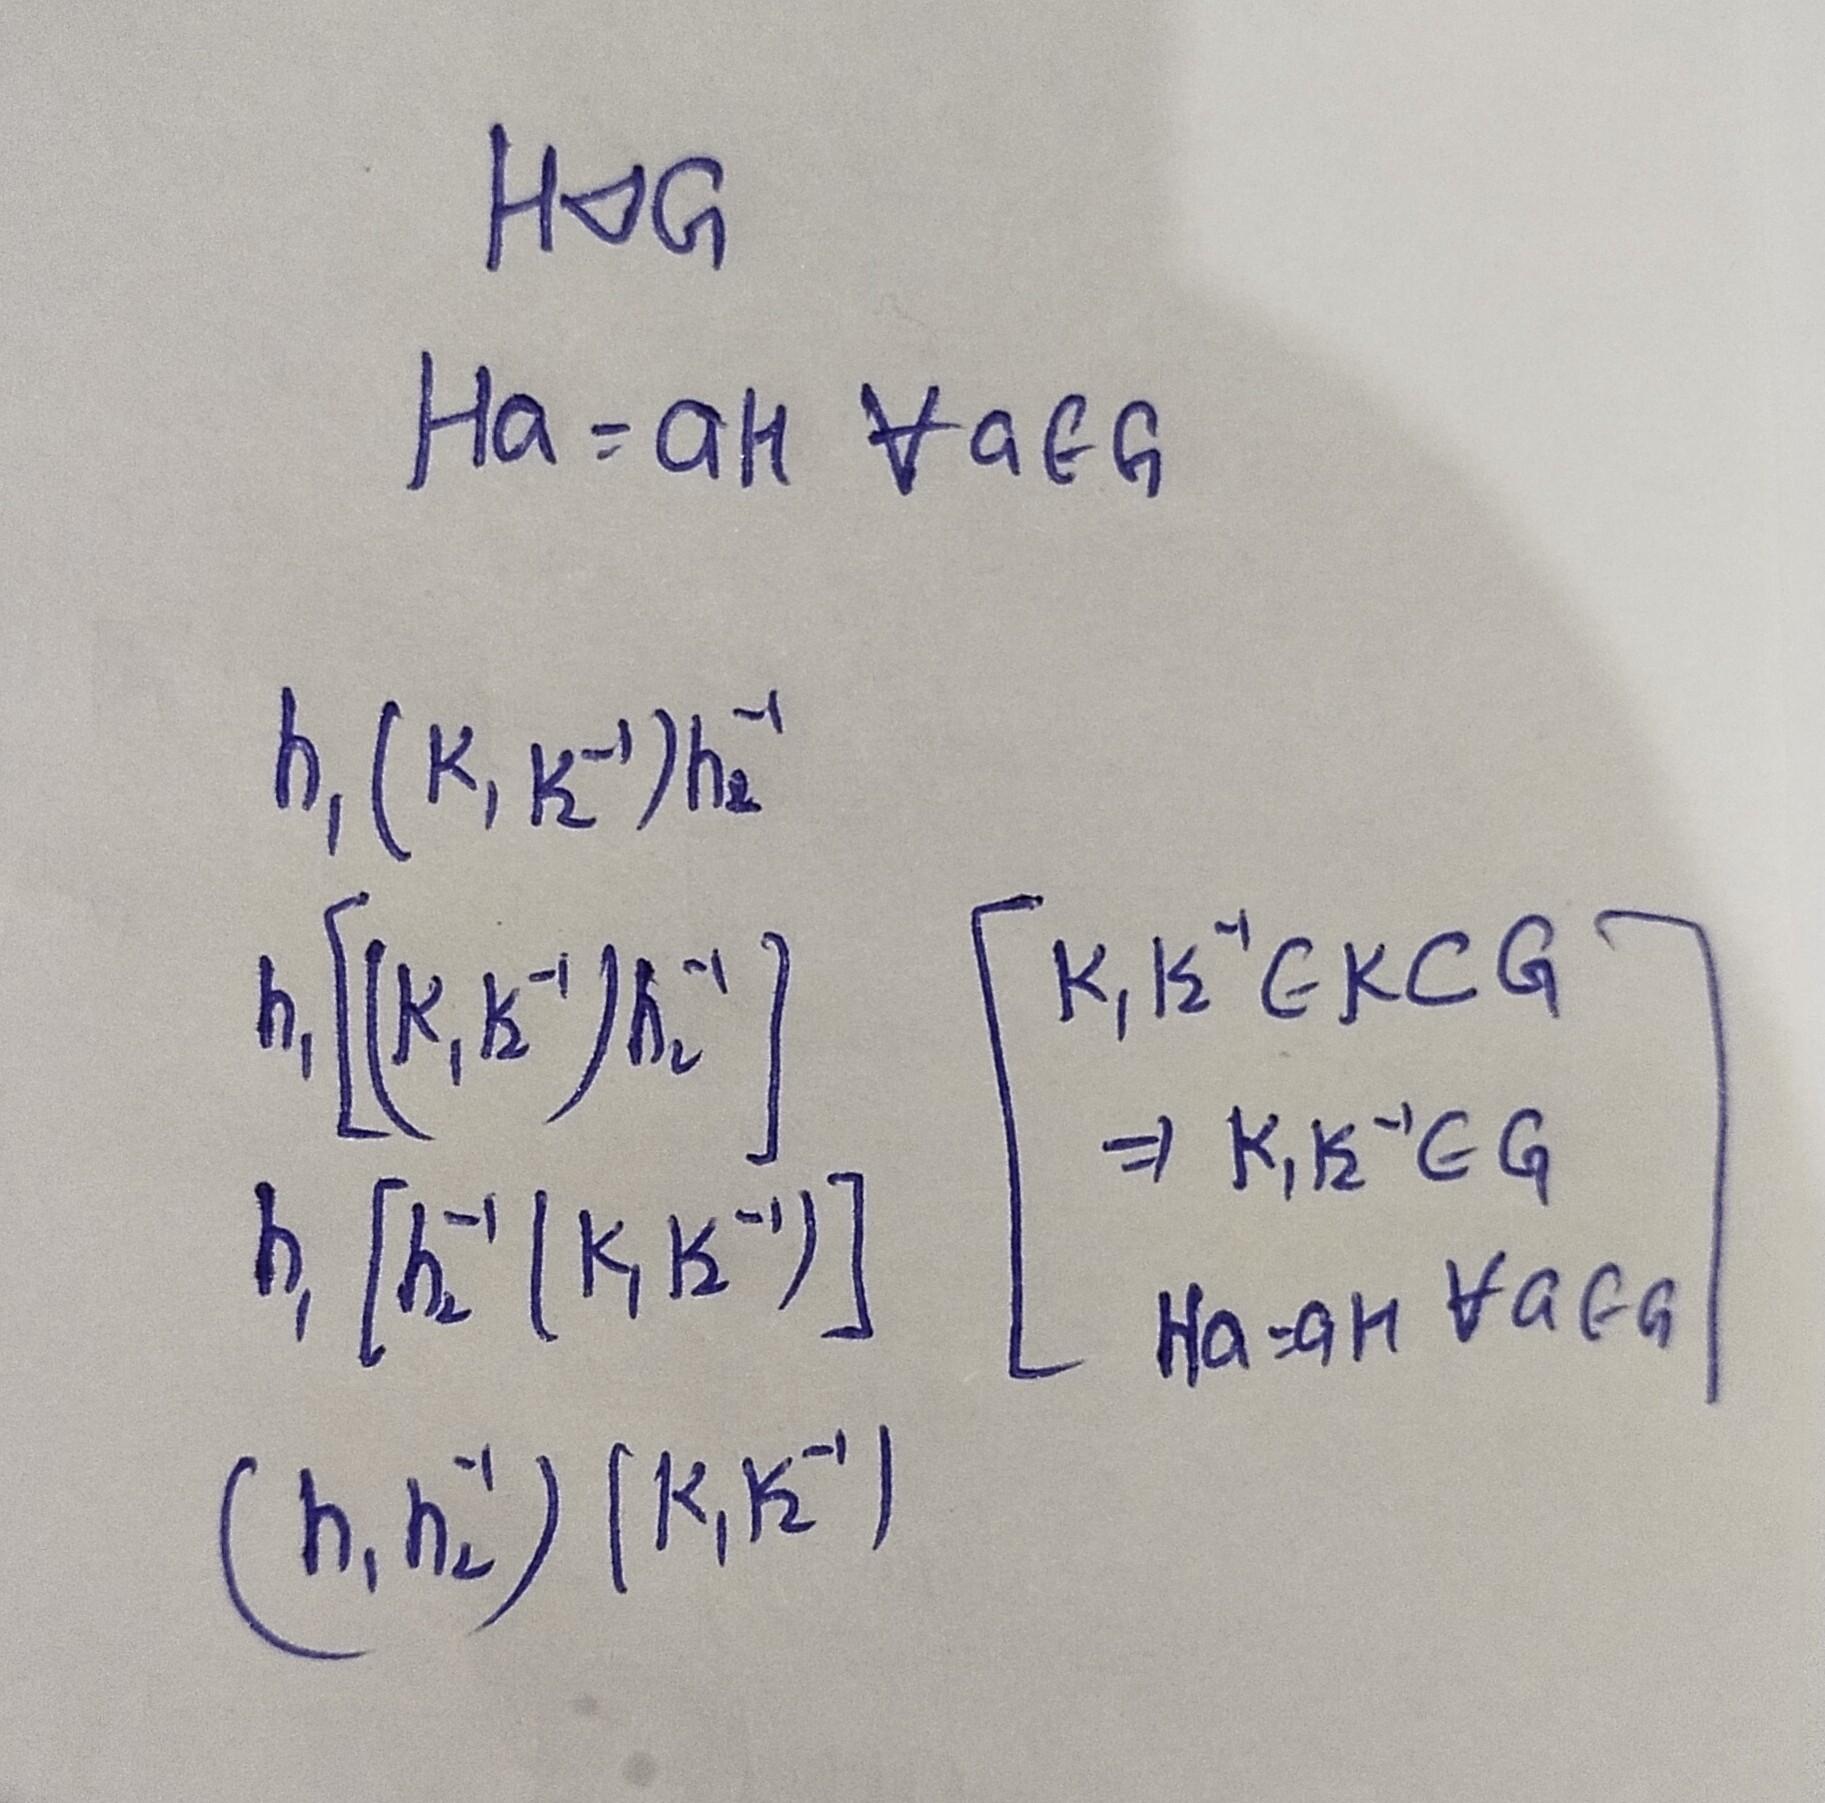 H⊲G
Ha = aH ∀ a ∈ G
h₁(K₁K₂⁻¹)h₂⁻¹
h₁[(K₁K₂⁻¹)h₂⁻¹]
h₁[h₂⁻¹(K₁K₂⁻¹)]
(h₁h₂⁻¹)(K₁K₂⁻¹)
[K₁K₂⁻¹ ∈ K ⊂ G
⇒ K₁K₂⁻¹ ∈ G
Ha = aH ∀ a ∈ G]